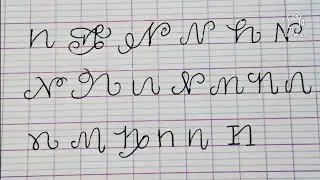 n N N N n N
N n n N n n n
n n n n n n